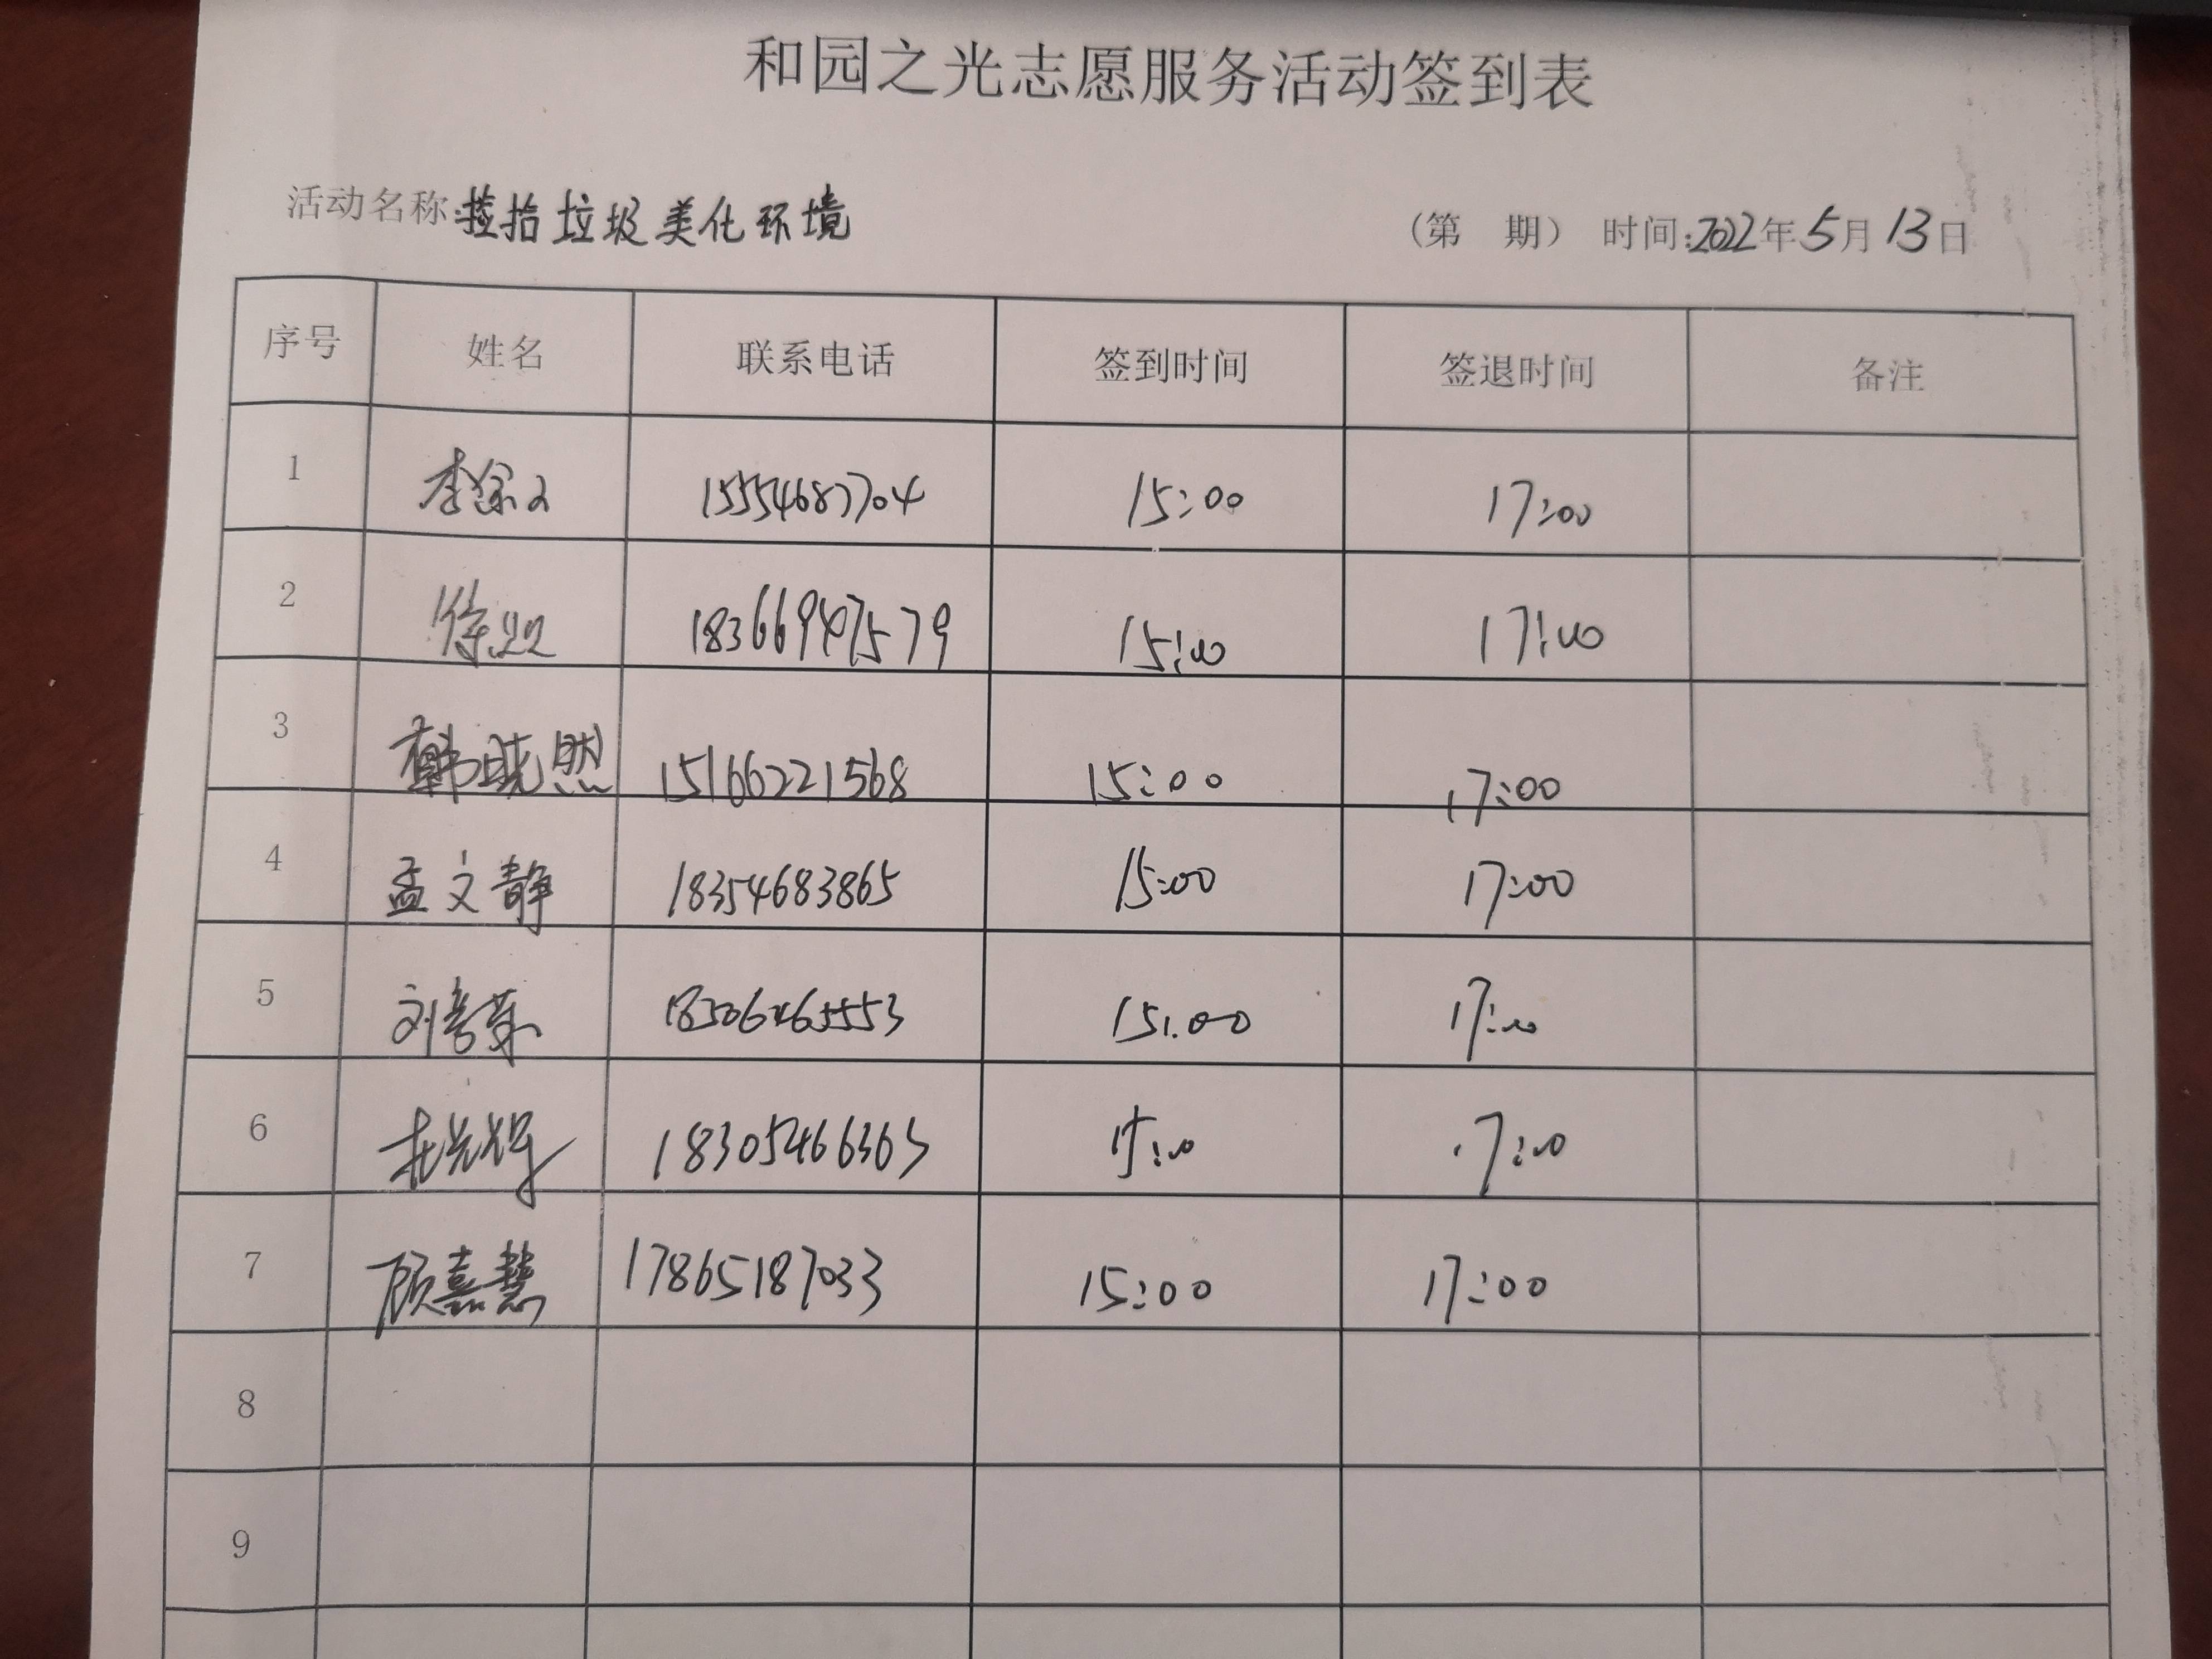 和园之光志愿服务活动签到表
活动名称:捡拾垃圾美化环境 (第 期) 时间:2022年5月13日
序号 姓名 联系电话 签到时间 签退时间 备注
1 李 15554687704 15:00 17:00
2 徐 18366947579 15:00 17:00
3 韩晓然 15166221568 15:00 17:00
4 孟文静 18354683865 15:00 17:00
5 刘 15:00 17:00
6 18305466363 15:00 17:00
7 顾嘉慧 17865187033 15:00 17:00
8
9